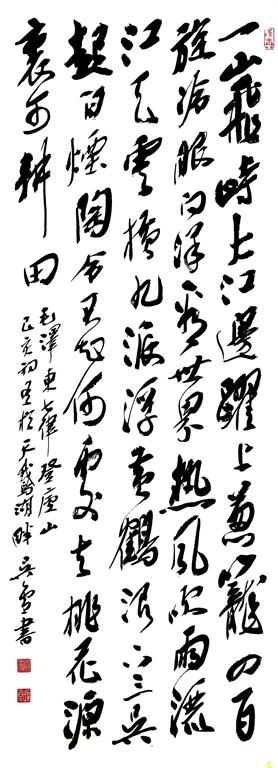 一山飛峙大江邊躍上蔥蘢四百
旋冷眼向洋看世界熱風吹雨灑
江天雲橫九派浮黃鶴浪下三吳
起白煙陶令不知何處去桃花源
裏可耕田
毛澤東七律登廬山
己亥初夏於天鵝湖畔吳雪書